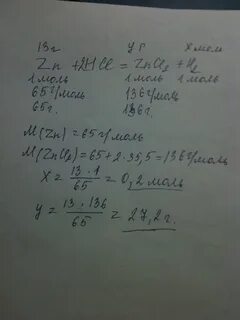 13г yг xмоль
Zn + 2HCl = ZnCl₂ + H₂
1моль 1моль 1моль
65г/моль 136г/моль
65г. 136г.
M(Zn) = 65г/моль
M(ZnCl₂) = 65+2·35,5=136г/моль
x = 13·1/65 = 0,2 моль
y = 13·136/65 = 27,2г.